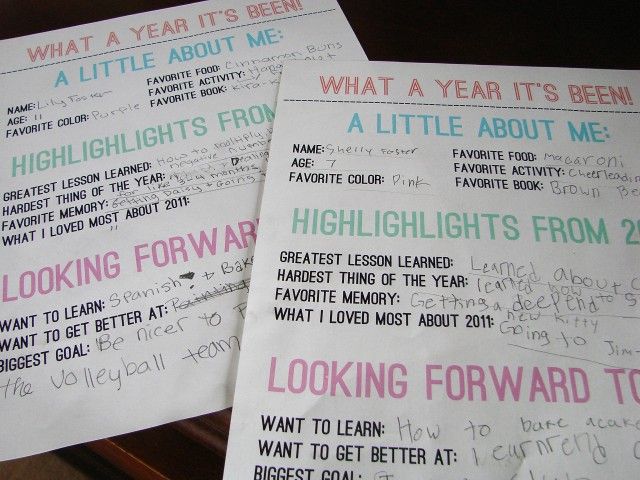 WHAT A YEAR IT'S BEEN!
A LITTLE ABOUT ME:
NAME: Lily Foster
AGE: 11
FAVORITE COLOR: Purple
FAVORITE FOOD: Cinnamon Buns
FAVORITE ACTIVITY:
FAVORITE BOOK: Kira
HIGHLIGHLIGHTS FROM
GREATEST LESSON LEARNED: How to multiply
HARDEST THING OF THE YEAR:
FAVORITE MEMORY: Getting Daisy & Going
WHAT I LOVED MOST ABOUT 2011: "
LOOKING FORWAR
WANT TO LEARN: Spanish + Bake
WANT TO GET BETTER AT:
BIGGEST GOAL: Be nicer to
the volleyball team
WHAT A YEAR IT'S BEEN!
A LITTLE ABOUT ME:
NAME: Shelly Foster
AGE: 7
FAVORITE COLOR: Pink
FAVORITE FOOD: Macaroni
FAVORITE ACTIVITY: Cheerleadin
FAVORITE BOOK: Brown Be
HIGHLIGHLIGHTS FROM 2
GREATEST LESSON LEARNED: Learned about
HARDEST THING OF THE YEAR: learned how to
FAVORITE MEMORY: Getting a deepend
WHAT I LOVED MOST ABOUT 2011: new Kitty
Going to Jim
LOOKING FORWARD TO
WANT TO LEARN: How to bake a cake
WANT TO GET BETTER AT:
BIGGEST GOAL: